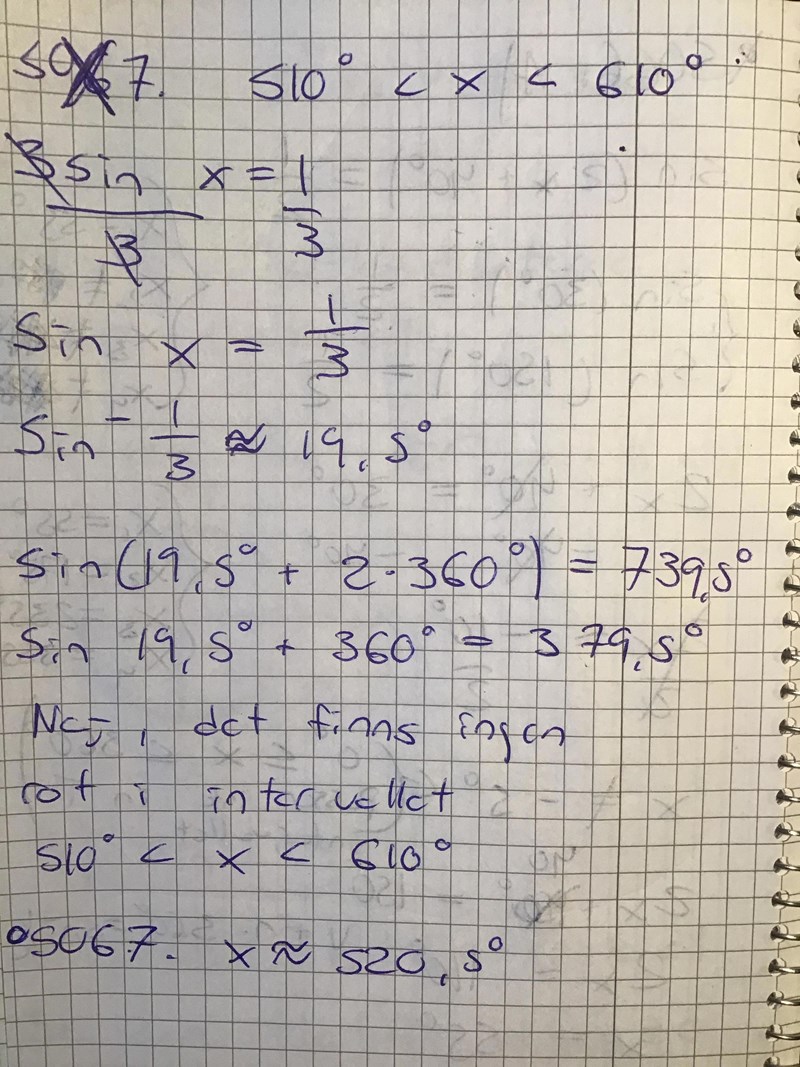 5067. 510° < x < 610°
3 sin x = 1
3 3
Sin x = 1/3
Sin⁻ 1/3 ≈ 19,5°
Sin(19,5° + 2·360°) = 739,5°
Sin 19,5° + 360° = 379,5°
Nej, det finns ingen
rot i intervallet
510° < x < 610°
5067. x ≈ 520,5°